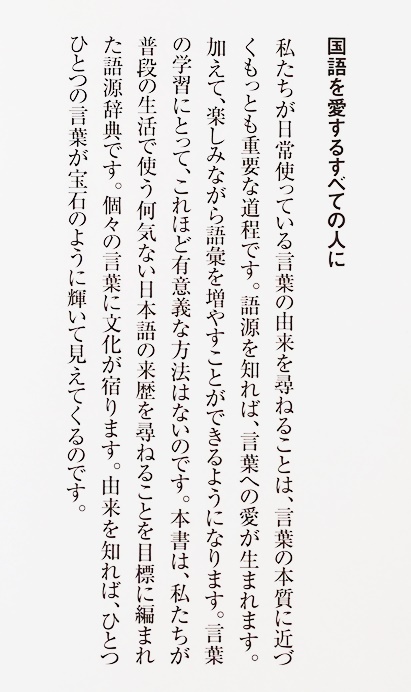 国語を愛するすべての人に
私たちが日常使っている言葉の由来を尋ねることは、言葉の本質に近づ
くもっとも重要な道程です。語源を知れば、言葉への愛が生まれます。
加えて、楽しみながら語彙を増やすことができるようになります。言葉
の学習にとって、これほど有意義な方法はないのです。本書は、私たちが
普段の生活で使う何気ない日本語の来歴を尋ねることを目標に編まれ
た語源辞典です。個々の言葉に文化が宿ります。由来を知れば、ひとつ
ひとつの言葉が宝石のように輝いて見えてくるのです。